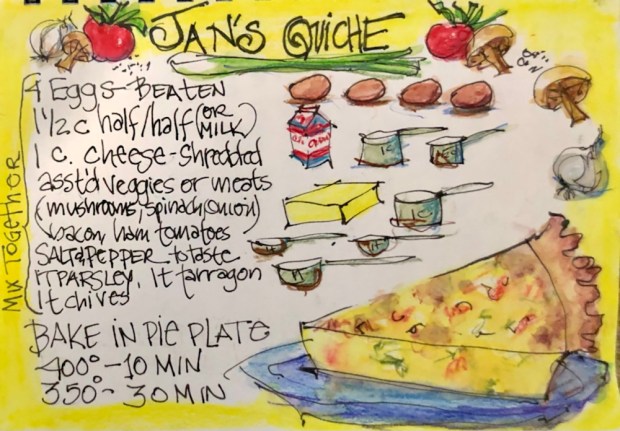 JAN'S QUICHE
4 EggS - BEATEN
1 1/2 c half/half (OR MILK)
1 c. cheese - shredded
asst'd veggies or meats
(mushrooms, spinach, onion)
bacon, ham tomatoes
SALT & PEPPER - to taste
1 T PARSLEY, 1 t tarragon
1 t chives
MIX TOGETHER
BAKE IN PIE PLATE
400° - 10 MIN
350° - 30 MIN
1 C
1 C